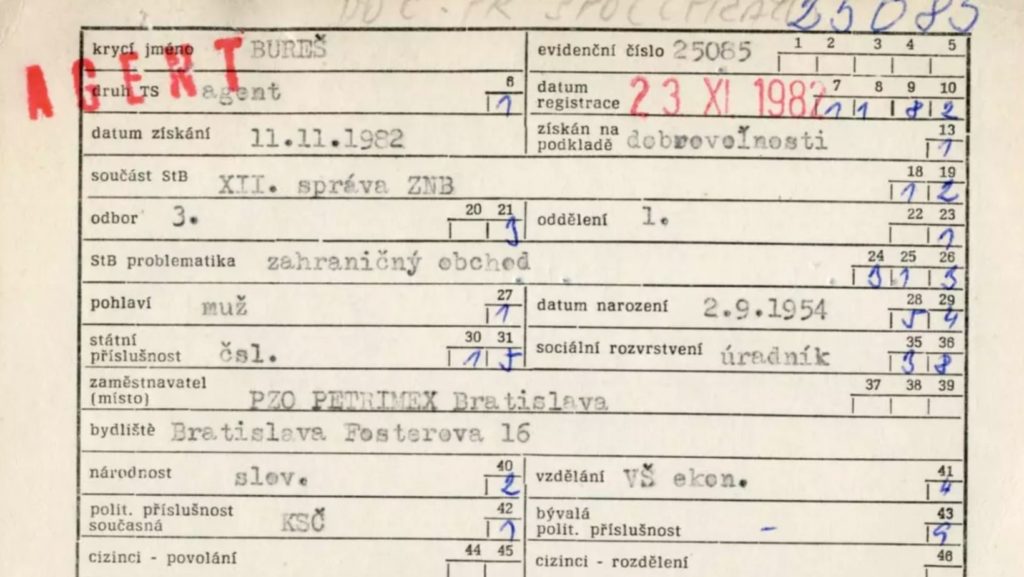 25085
krycí jméno BUREŠ evidenční číslo 25085 1 2 3 4 5
AGENT
druh TS agent 6 1 datum registrace 23 XI 1982 7 8 9 10 1 1 8 2
datum získání 11.11.1982 získán na podkladě dobrovoľnosti 13 1
součást StB XII. správa ZNB 18 19 1 2
odbor 3. 20 21 3 oddělení 1. 22 23 1
StB problematika zahraničný obchod 24 25 26 3 1 3
pohlaví muž 27 1 datum narození 2.9.1954 28 29 5 4
státní příslušnost čsl. 30 31 1 5 sociální rozvrstvení úradník 35 36 3 8
zaměstnavatel (místo) PZO PETRIMEX Bratislava 37 38 39
bydliště Bratislava Fosterova 16
národnost slov. 40 2 vzdělání VŠ ekon. 41 4
polit. příslušnost současná KSČ 42 1 bývalá polit. příslušnost - 43 9
cizinci - povolání 44 45 cizinci - rozdělení 46